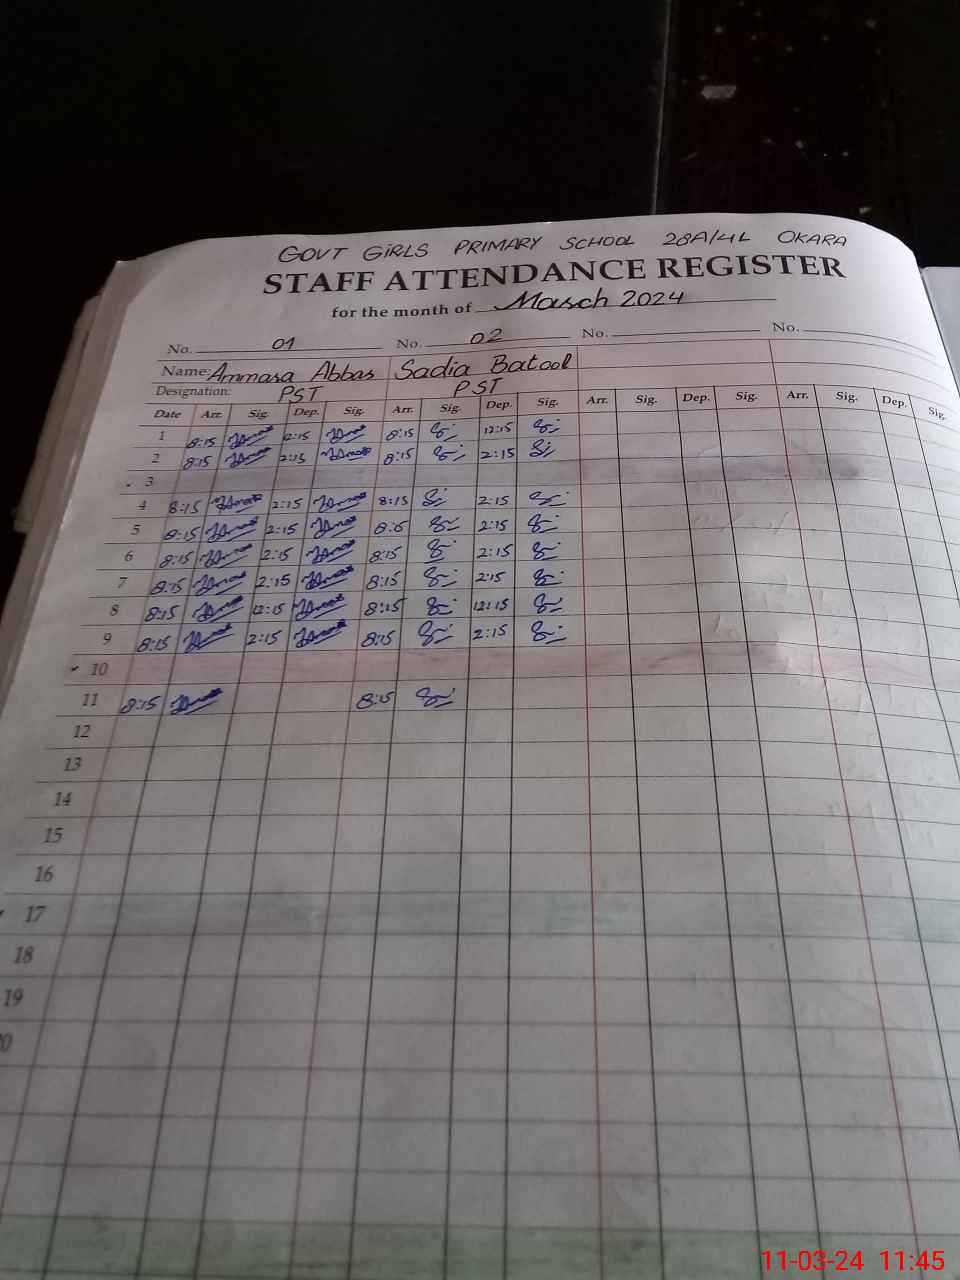 GOVT GIRLS PRIMARY SCHOOL 28A/4L OKARA
STAFF ATTENDANCE REGISTER
for the month of March 2024
No. 01 No. 02 No. No.
Name: Ammara Abbas Sadia Batool
Designation: PST PST
Date Arr. Sig. Dep. Sig. Arr. Sig. Dep. Sig. Arr. Sig. Dep. Sig. Arr. Sig. Dep. Sig.
1 8:15 12:15 8:15 12:15
2 8:15 2:15 8:15 2:15
3
4 8:15 2:15 8:15 2:15
5 8:15 2:15 8:15 2:15
6 8:15 2:15 8:15 2:15
7 8:15 2:15 8:15 2:15
8 8:15 12:15 8:15 12:15
9 8:15 2:15 8:15 2:15
10
11 8:15 8:15
12
13
14
15
16
17
18
19
11-03-24 11:45